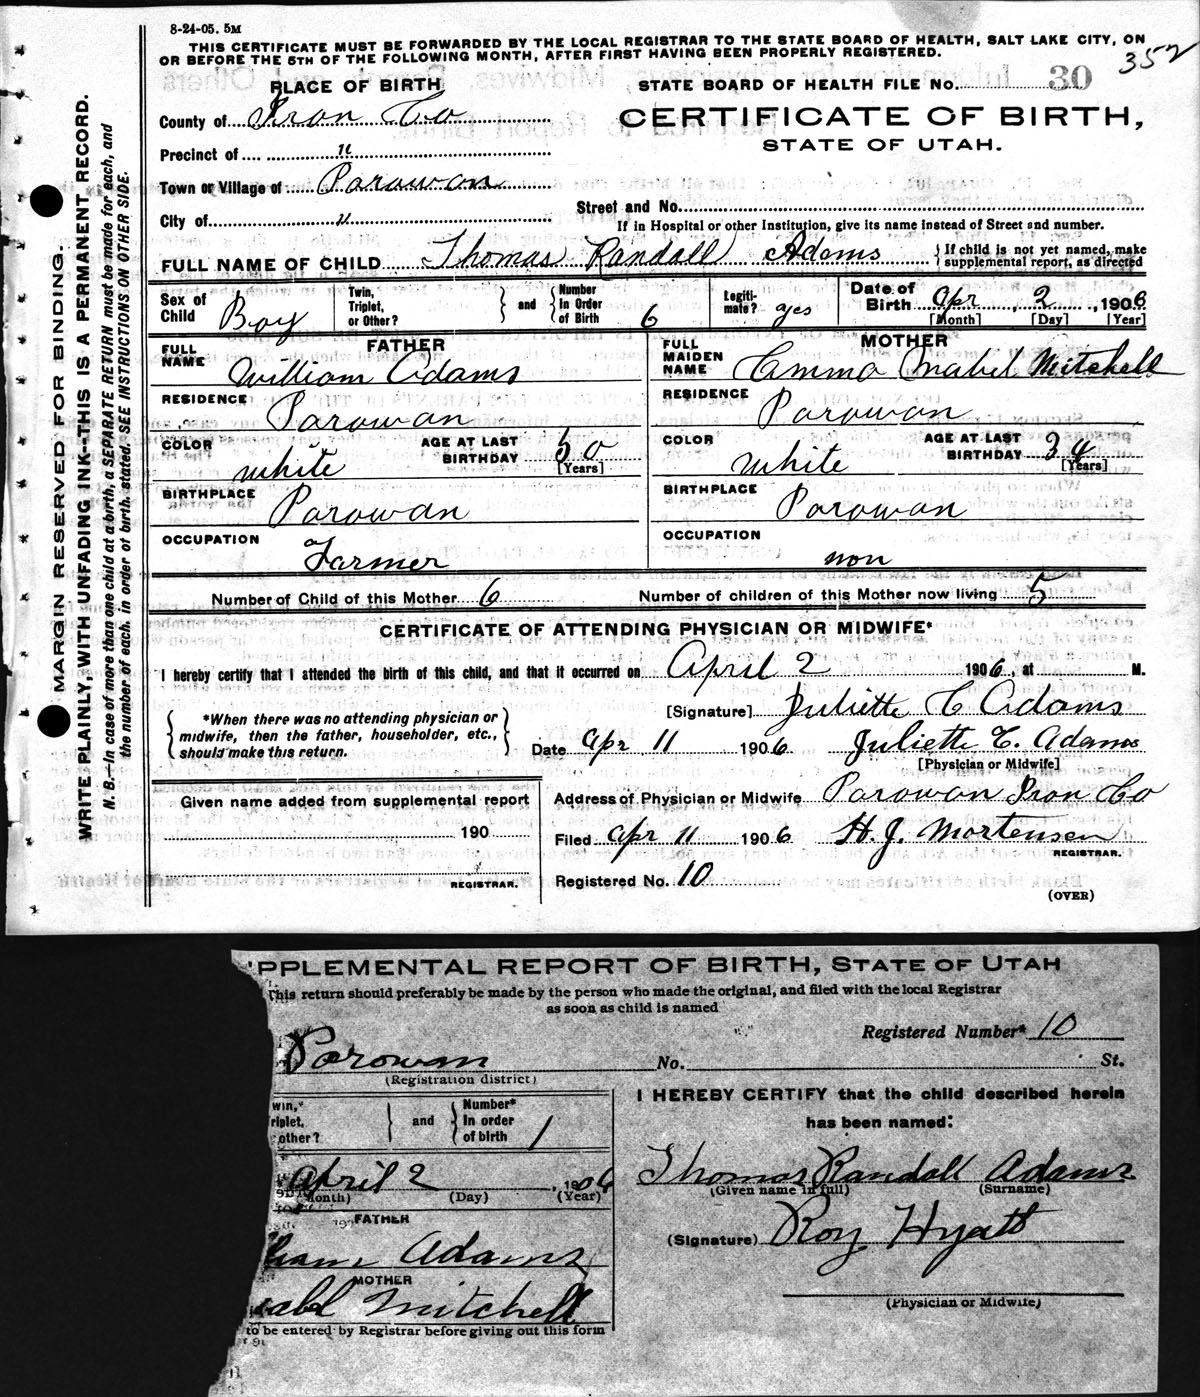 8-24-05. 5M
THIS CERTIFICATE MUST BE FORWARDED BY THE LOCAL REGISTRAR TO THE STATE BOARD OF HEALTH, SALT LAKE CITY, ON
OR BEFORE THE 5TH OF THE FOLLOWING MONTH, AFTER FIRST HAVING BEEN PROPERLY REGISTERED.
352
PLACE OF BIRTH
STATE BOARD OF HEALTH FILE No. 30
County of Iron Co
CERTIFICATE OF BIRTH,
STATE OF UTAH.
Precinct of "
Town or Village of Parowan
Street and No.
City of "
If in Hospital or other Institution, give its name instead of Street and number.
FULL NAME OF CHILD Thomas Randall Adams { If child is not yet named, make
supplemental report, as directed
Sex of Child Boy Twin, Triplet, or Other? } and { Number In Order of Birth 6 Legiti-mate? yes Date of Birth Apr 2 1906
[Month] [Day] [Year]
FATHER
MOTHER
FULL NAME William Adams
FULL MAIDEN NAME Emma Mabel Mitchell
RESIDENCE Parowan
RESIDENCE Parowan
COLOR white AGE AT LAST BIRTHDAY 50 [Years]
COLOR white AGE AT LAST BIRTHDAY 34 [Years]
BIRTHPLACE Parowan
BIRTHPLACE Parowan
OCCUPATION Farmer
OCCUPATION non
Number of Child of this Mother 6 Number of children of this Mother now living 5
CERTIFICATE OF ATTENDING PHYSICIAN OR MIDWIFE*
I hereby certify that I attended the birth of this child, and that it occurred on April 2 1906, at M.
{ *When there was no attending physician or
midwife, then the father, householder, etc.,
should make this return. }
[Signature] Juliette C Adams
Date Apr 11 1906 Juliette C. Adams
[Physician or Midwife]
Given name added from supplemental report
190
REGISTRAR.
Address of Physician or Midwife Parowan Iron Co
Filed Apr 11 1906 H. J. Mortensen
REGISTRAR.
Registered No. 10
(OVER)
MARGIN RESERVED FOR BINDING.
WRITE PLAINLY, WITH UNFADING INK—THIS IS A PERMANENT RECORD.
N. B.—In case of more than one child at a birth, a SEPARATE RETURN must be made for each, and
the number of each, in order of birth, stated. SEE INSTRUCTIONS ON OTHER SIDE.
PPLEMENTAL REPORT OF BIRTH, STATE OF UTAH
This return should preferably be made by the person who made the original, and filed with the local Registrar
as soon as child is named
Registered Number* 10
Parowan No. St.
(Registration district)
win,* riplet, other? } and { Number* In order of birth 1
April 2, 1906
(Month) (Day) (Year)
FATHER
liam Adams
MOTHER
abel Mitchell
to be entered by Registrar before giving out this form
I HEREBY CERTIFY that the child described herein
has been named:
Thomas Randall Adams
(Given name in full) (Surname)
(Signature) Roy Hyatt
(Physician or Midwife)